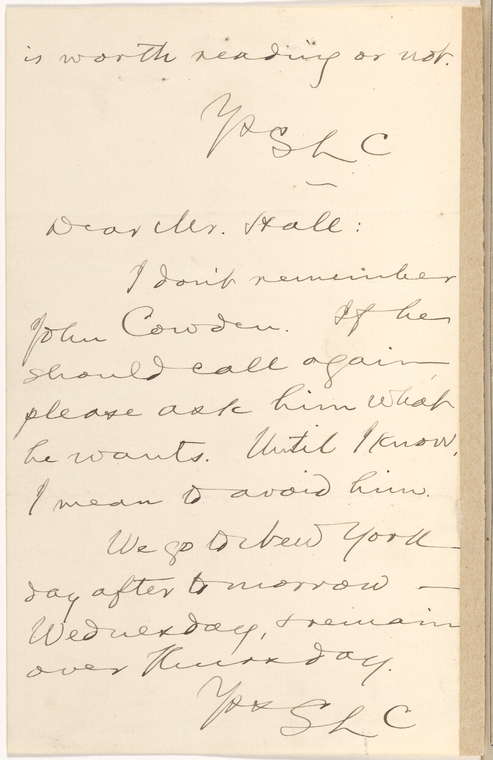 is worth reading or not.
Yrs SLC
Dear Mr. Hall:
I don't remember
John Cowden. If he
should call again,
please ask him what
he wants. Until I know,
I mean to avoid him.
We go to New York
day after tomorrow —
Wednesday, & remain
over Thursday.
Yrs SLC